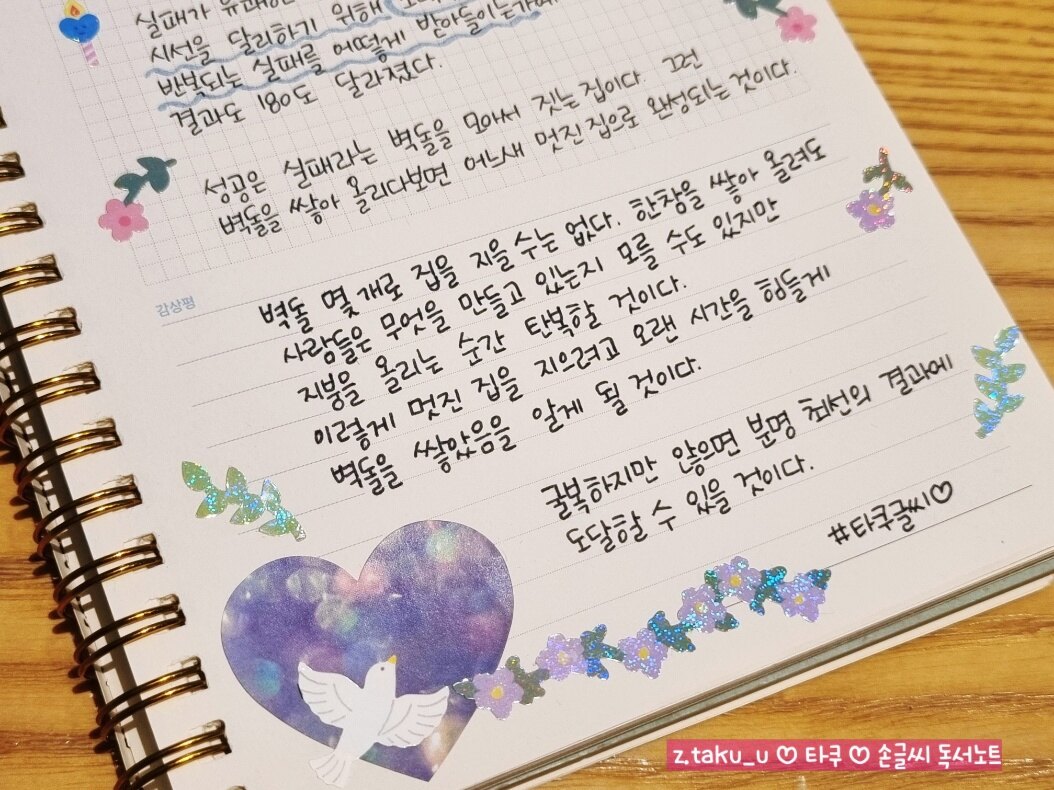 실패가
시선을 달리하기 위해
반복되는 실패를 어떻게 받아들이는가에
결과도 180도 달라졌다.
성공은 실패라는 벽돌을 모아서 짓는 집이다. 그런
벽돌을 쌓아 올리다보면 어느새 멋진 집으로 완성되는 것이다.
감상평
벽돌 몇 개로 집을 지을 수는 없다. 한참을 쌓아 올려도
사람들은 무엇을 만들고 있는지 모를 수도 있지만
지붕을 올리는 순간 탄복할 것이다.
이렇게 멋진 집을 지으려고 오랜 시간을 힘들게
벽돌을 쌓았음을 알게 될 것이다.
굴복하지만 않으면 분명 최선의 결과에
도달할 수 있을 것이다.
#타쿠글씨♡
z.taku_u ♡ 타쿠 ♡ 손글씨 독서노트